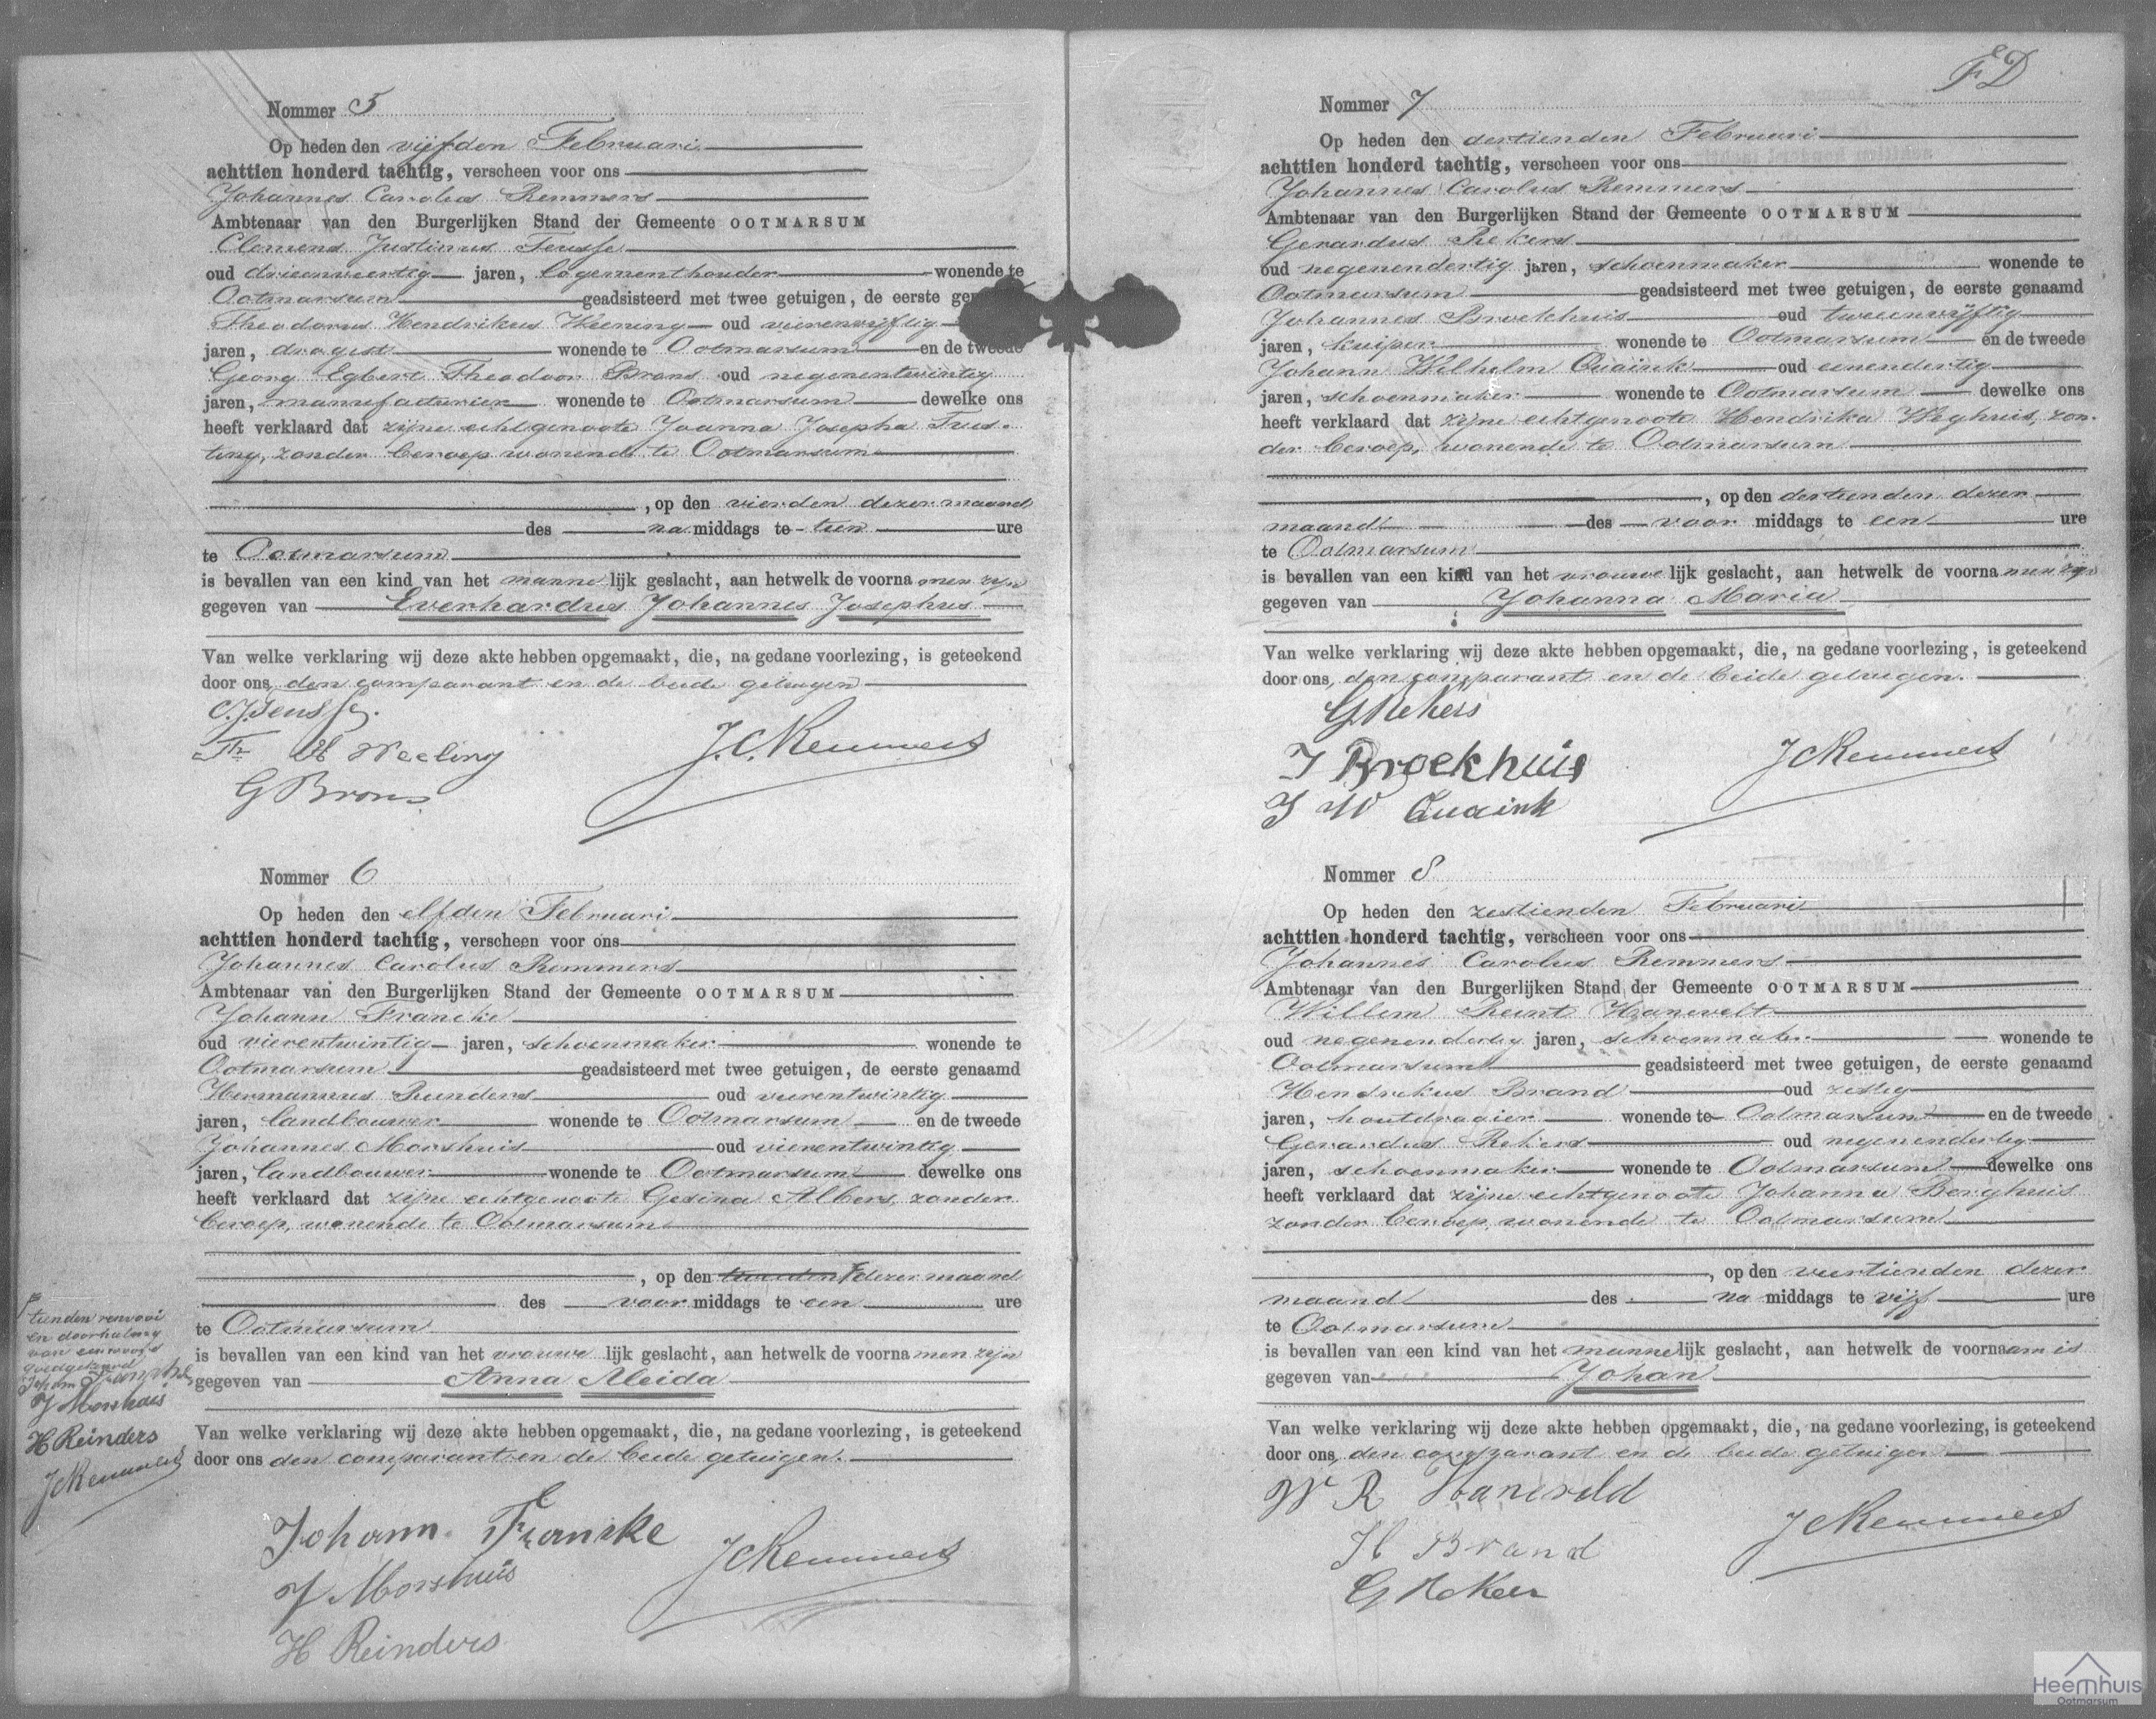 Nommer 5
Op heden den vijfden Februari
achttien honderd tachtig, verscheen voor ons
Johannes Carolus Remmers
Ambtenaar van den Burgerlijken Stand der Gemeente OOTMARSUM
Clemens Justinus
oud drieenveertig jaren, logementhouder wonende te
Ootmarsum geadsisteerd met twee getuigen, de eerste gen
Theodorus Hendrikus oud vierenvijftig
jaren, drogist wonende te Ootmarsum en de tweede
Georg Egbert Theodoor Brons oud negenentwintig
jaren, manufacturier wonende te Ootmarsum dewelke ons
heeft verklaard dat zijne echtgenoote Joanna Josepha Trus-
ting, zonder beroep wonende te Ootmarsum
, op den vierden dezer maand
des na middags te tien ure
te Ootmarsum
is bevallen van een kind van het manne lijk geslacht, aan hetwelk de voorna men zijn
gegeven van Everhardus Johannes Josephus
Van welke verklaring wij deze akte hebben opgemaakt, die, na gedane voorlezing, is geteekend
door ons, den comparant en de beide getuigen
Th H Weeling
J.C. Remmers
G Brons
Nommer 6
Op heden den elfden Februari
achttien honderd tachtig, verscheen voor ons
Johannes Carolus Remmers
Ambtenaar van den Burgerlijken Stand der Gemeente OOTMARSUM
Johann Francke
oud vierentwintig jaren, schoenmaker wonende te
Ootmarsum geadsisteerd met twee getuigen, de eerste genaamd
Hermannus Reinders oud vierentwintig
jaren, landbouwer wonende te Ootmarsum en de tweede
Johannes Morshuis oud vierentwintig
jaren, landbouwer wonende te Ootmarsum dewelke ons
heeft verklaard dat zijne echtgenoote Gesina Albers, zonder
beroep, wonende te Ootmarsum
, op den dezer maand
des voor middags te een ure
te Ootmarsum
is bevallen van een kind van het vrouwe lijk geslacht, aan hetwelk de voorna men zijn
gegeven van Anna Aleida
Van welke verklaring wij deze akte hebben opgemaakt, die, na gedane voorlezing, is geteekend
door ons den comparant en de beide getuigen.
tienden renvooi
en doorhaling
van een woord
goedgekeurd
Johann Francke
J Morshuis
H Reinders
JCRemmers
Johann Francke
JCRemmers
J Morshuis
H Reinders
Nommer 7
Op heden den dertienden Februari
achttien honderd tachtig, verscheen voor ons
Johannes Carolus Remmers
Ambtenaar van den Burgerlijken Stand der Gemeente OOTMARSUM
Gerardus Rekers
oud negenendertig jaren, schoenmaker wonende te
Ootmarsum geadsisteerd met twee getuigen, de eerste genaamd
Johannes Broekhuis oud tweeenvijftig
jaren, kuiper wonende te Ootmarsum en de tweede
Johann Wilhelm Quaink oud eenendertig
jaren, schoenmaker wonende te Ootmarsum dewelke ons
heeft verklaard dat zijne echtgenoote Hendrika Weghuis, zon-
der beroep, wonende te Ootmarsum
, op den dertienden dezer
maand des voor middags te een ure
te Ootmarsum
is bevallen van een kind van het vrouwe lijk geslacht, aan hetwelk de voorna men zijn
gegeven van Johanna Maria
Van welke verklaring wij deze akte hebben opgemaakt, die, na gedane voorlezing, is geteekend
door ons, den comparant en de beide getuigen.
G Rekers
J Broekhuis
JCRemmers
J W Quaink
Nommer 8
Op heden den zestienden Februari
achttien honderd tachtig, verscheen voor ons
Johannes Carolus Remmers
Ambtenaar van den Burgerlijken Stand der Gemeente OOTMARSUM
Willem Reint Hanevelt
oud negenendertig jaren, schoenmaker wonende te
Ootmarsum geadsisteerd met twee getuigen, de eerste genaamd
Hendrikus Brand oud zestig
jaren, houtdragier wonende te Ootmarsum en de tweede
Gerardus Rekers oud negenendertig
jaren, schoenmaker wonende te Ootmarsum dewelke ons
heeft verklaard dat zijne echtgenoote Johanna Berghuis
zonder beroep, wonende te Ootmarsum
, op den veertienden dezer
maand des na middags te vijf ure
te Ootmarsum
is bevallen van een kind van het mannelijk geslacht, aan hetwelk de voornaam is
gegeven van Johan
Van welke verklaring wij deze akte hebben opgemaakt, die, na gedane voorlezing, is geteekend
door ons, den comparant en de beide getuigen
W R Haneveld
JCRemmers
H Brand
G Rekers
Heemhuis
Ootmarsum